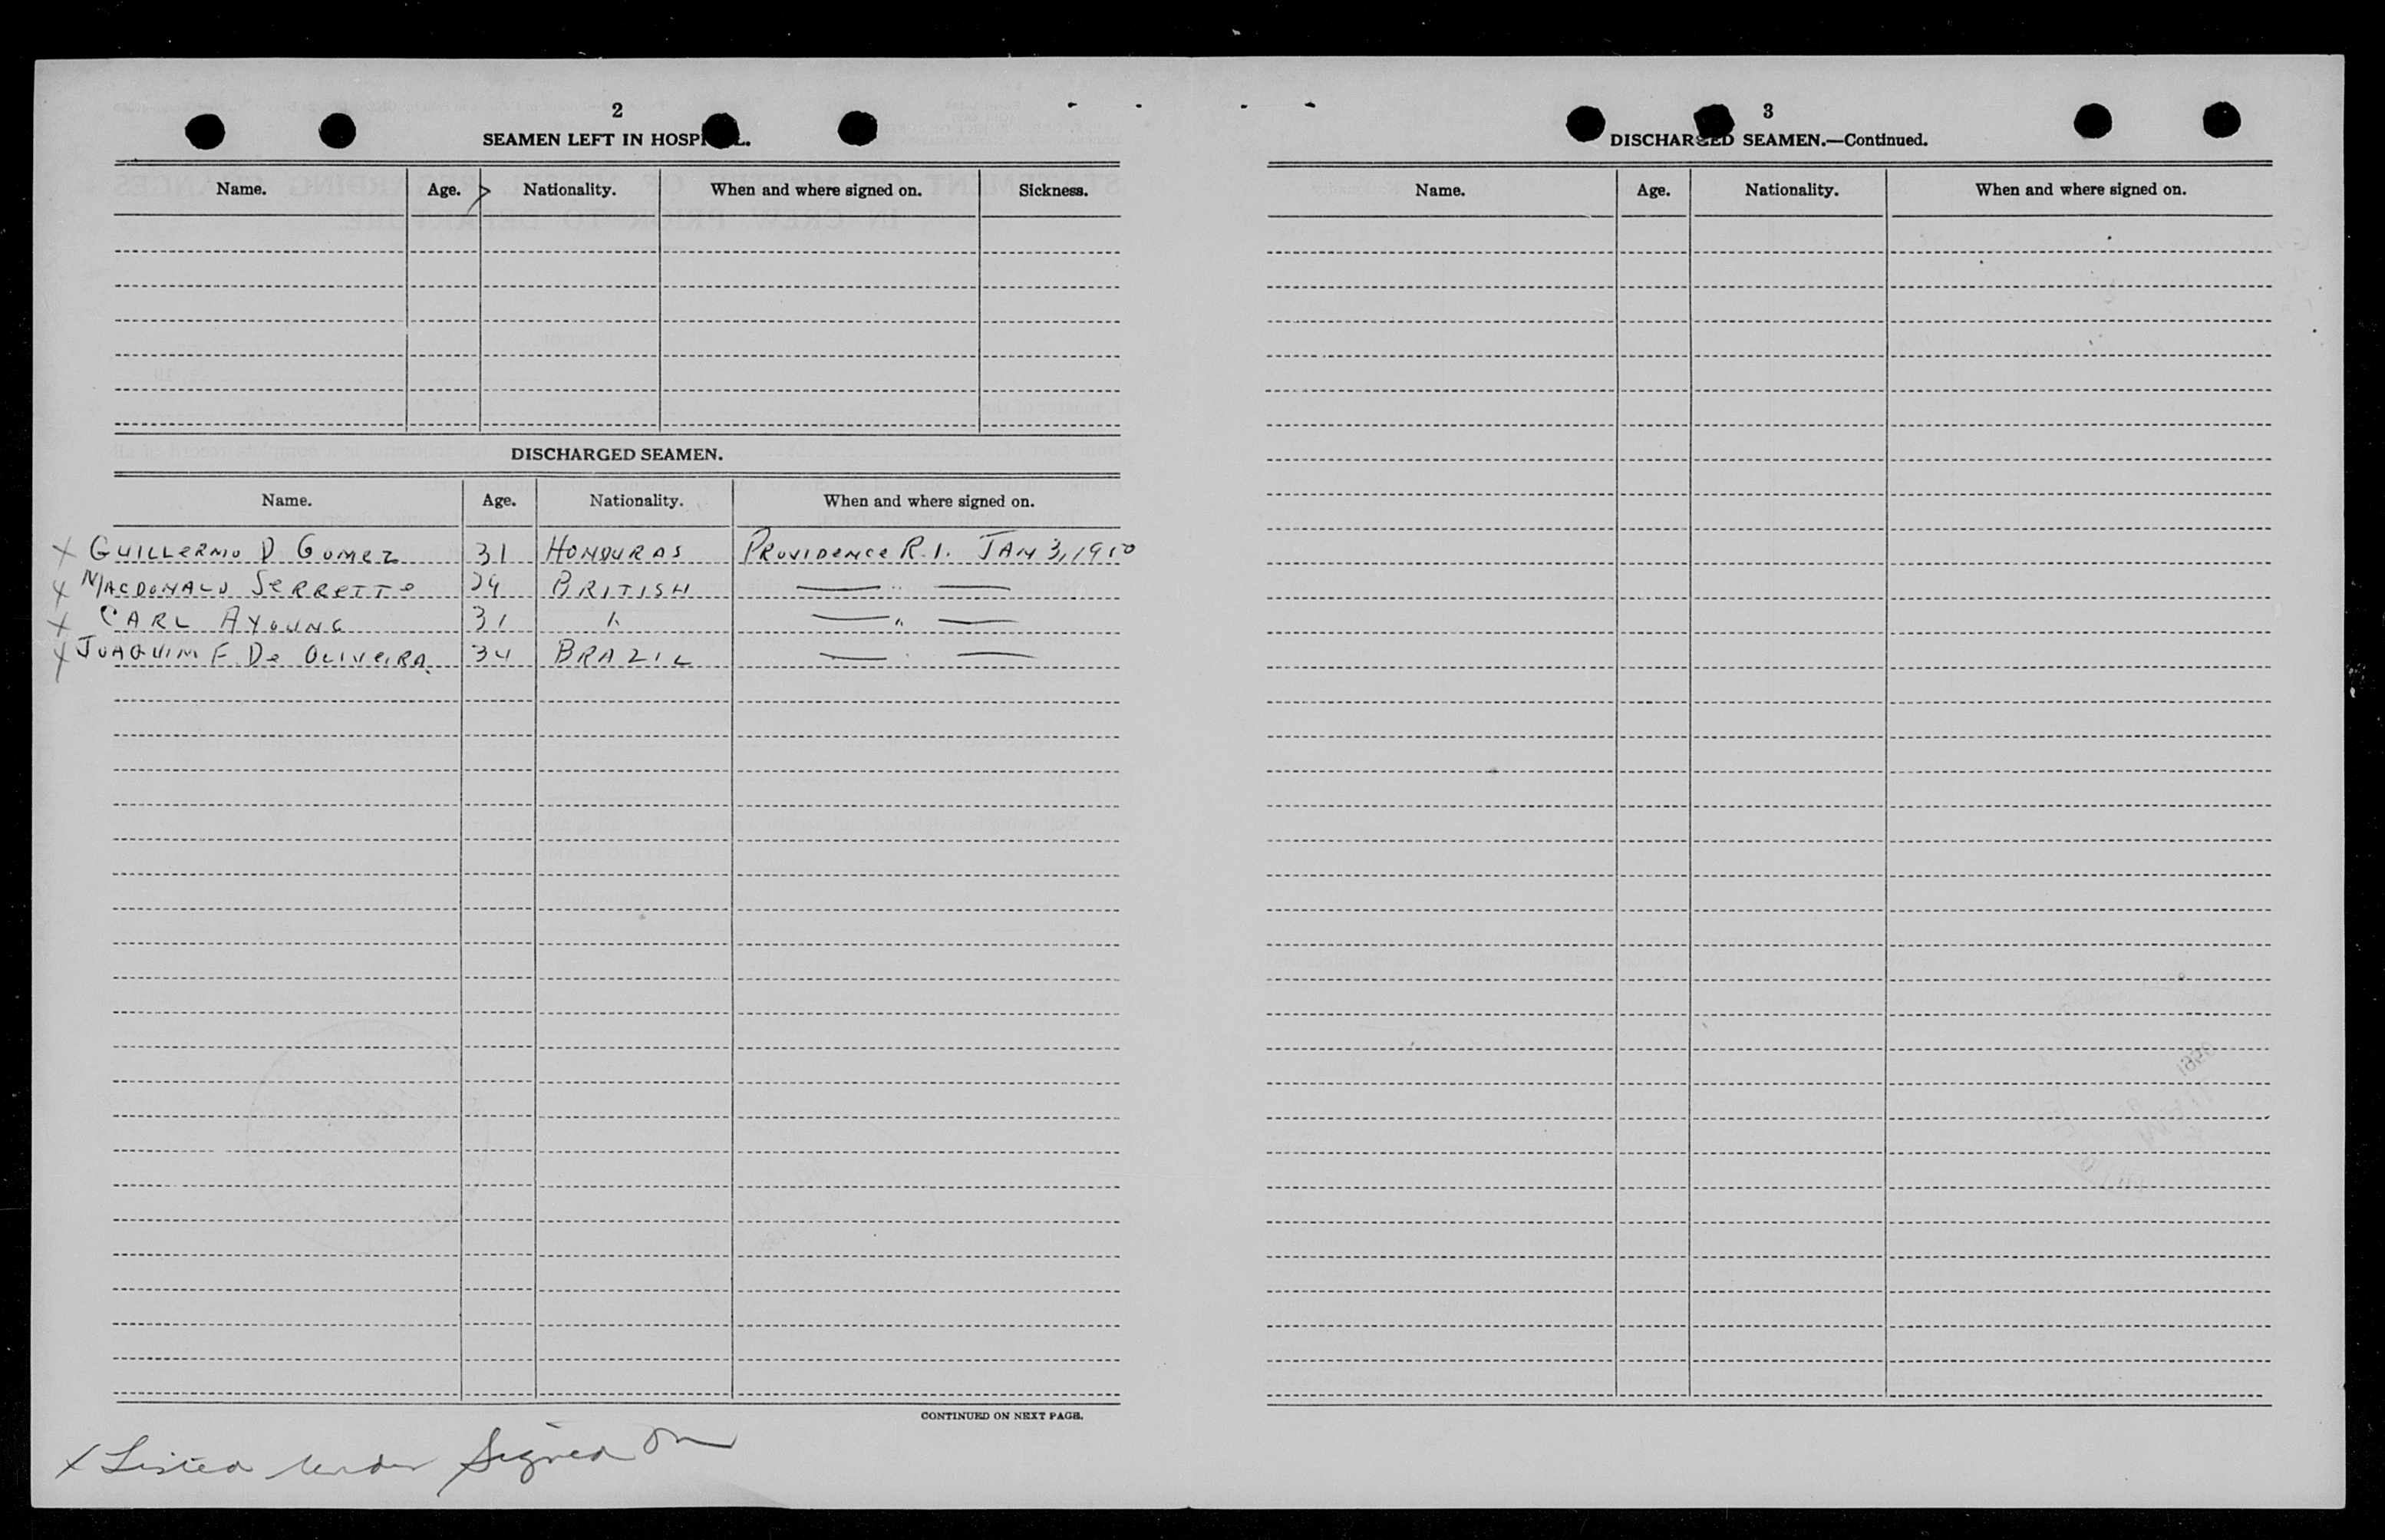 2
SEAMEN LEFT IN HOSPI L.
Name. Age. Nationality. When and where signed on. Sickness.
DISCHARGED SEAMEN.
Name. Age. Nationality. When and where signed on.
x GUILLERMO D GOMEZ 31 HONDURAS PROVIDENCE R.I. JAN 3, 1950
x MACDONALD SERRETTE 29 BRITISH — " —
x CARL AYOUNG 31 " — " —
x JOAQUIM F. De OLIVEIRA 34 BRAZIL — " —
CONTINUED ON NEXT PAGE.
x Listed under Signed On
3
DISCHARGED SEAMEN.—Continued.
Name. Age. Nationality. When and where signed on.